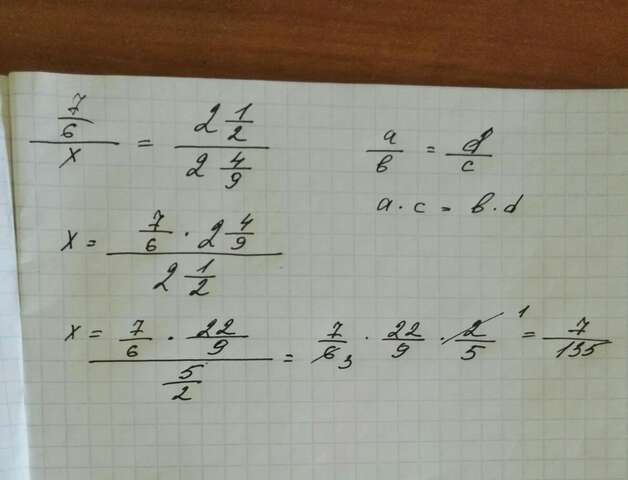 7/6 / x = 2 1/2 / 2 4/9
a/b = d/c
a · c = b · d
x = 7/6 · 2 4/9 / 2 1/2
x = 7/6 · 22/9 / 5/2 = 7/6 3 · 22/9 · 2/5 1 = 7/135